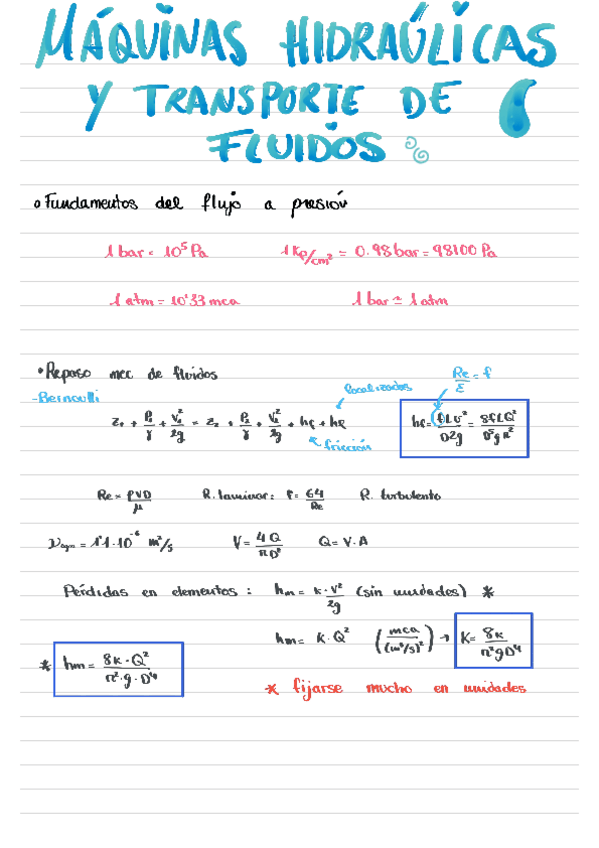 MÁQUINAS HIDRAÚLICAS
Y TRANSPORTE DE
FLUIDOS
Fundamentos del flujo a presión
1 bar = 10⁵ Pa 1 Kp/cm² = 0.98 bar = 98100 Pa
1 atm = 10'33 mca 1 bar ≃ 1 atm
• Repaso mec de fluidos
- Bernoulli
localizadas
Re/ε = f
z₁ + P₁/γ + V₁²/2g = z₂ + P₂/γ + V₂²/2g + hf + hl
fricción
hf = fLv²/D2g = 8fLQ²/D⁵gπ²
Re = ρVD/μ R. laminar: f = 64/Re R. turbulento
νagua = 1'1·10⁻⁶ m²/s V = 4Q/πD² Q = V·A
Pérdidas en elementos: hm = k·V²/2g (sin unidades) *
hm = K·Q² (mca/(m³/s)²) → K = 8k/π²gD⁴
* hm = 8k·Q²/π²·g·D⁴
* fijarse mucho en unidades